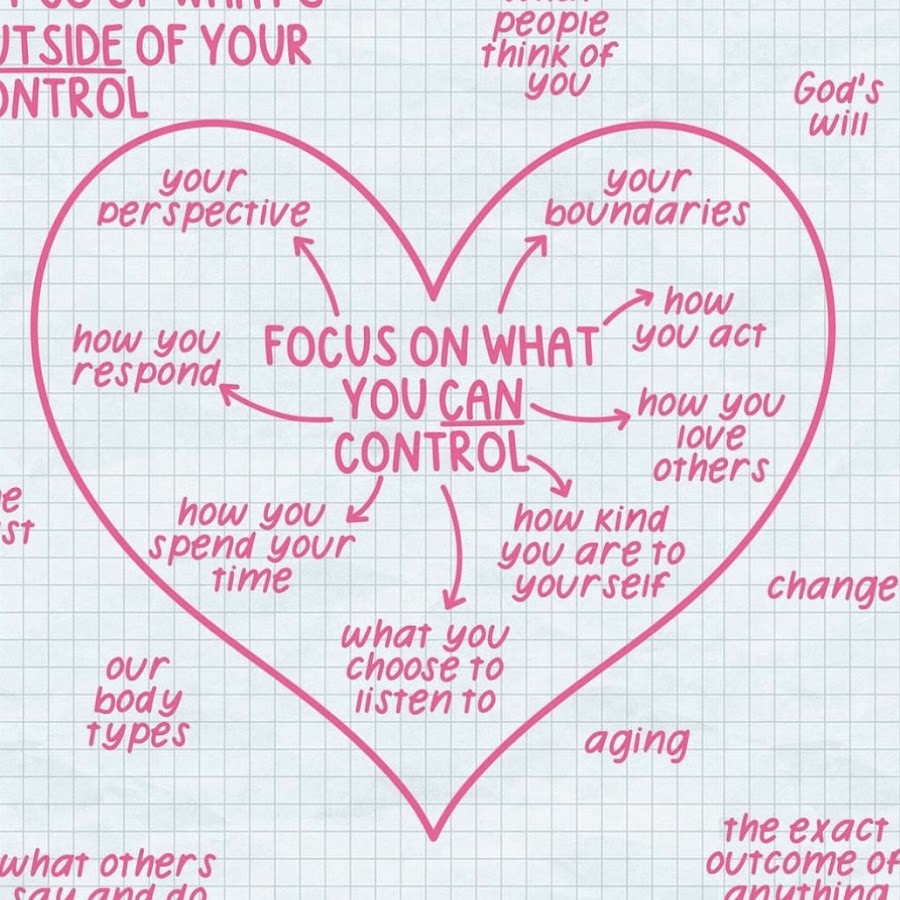 OUTSIDE OF YOUR
CONTROL
people
think of
you
God's
will
your
perspective
your
boundaries
how
you act
how you
respond
FOCUS ON WHAT
YOU CAN
CONTROL
how you
love
others
how you
spend your
time
how kind
you are to
yourself
what you
choose to
listen to
change
our
body
types
aging
the exact
outcome of
anything
what others
say and do